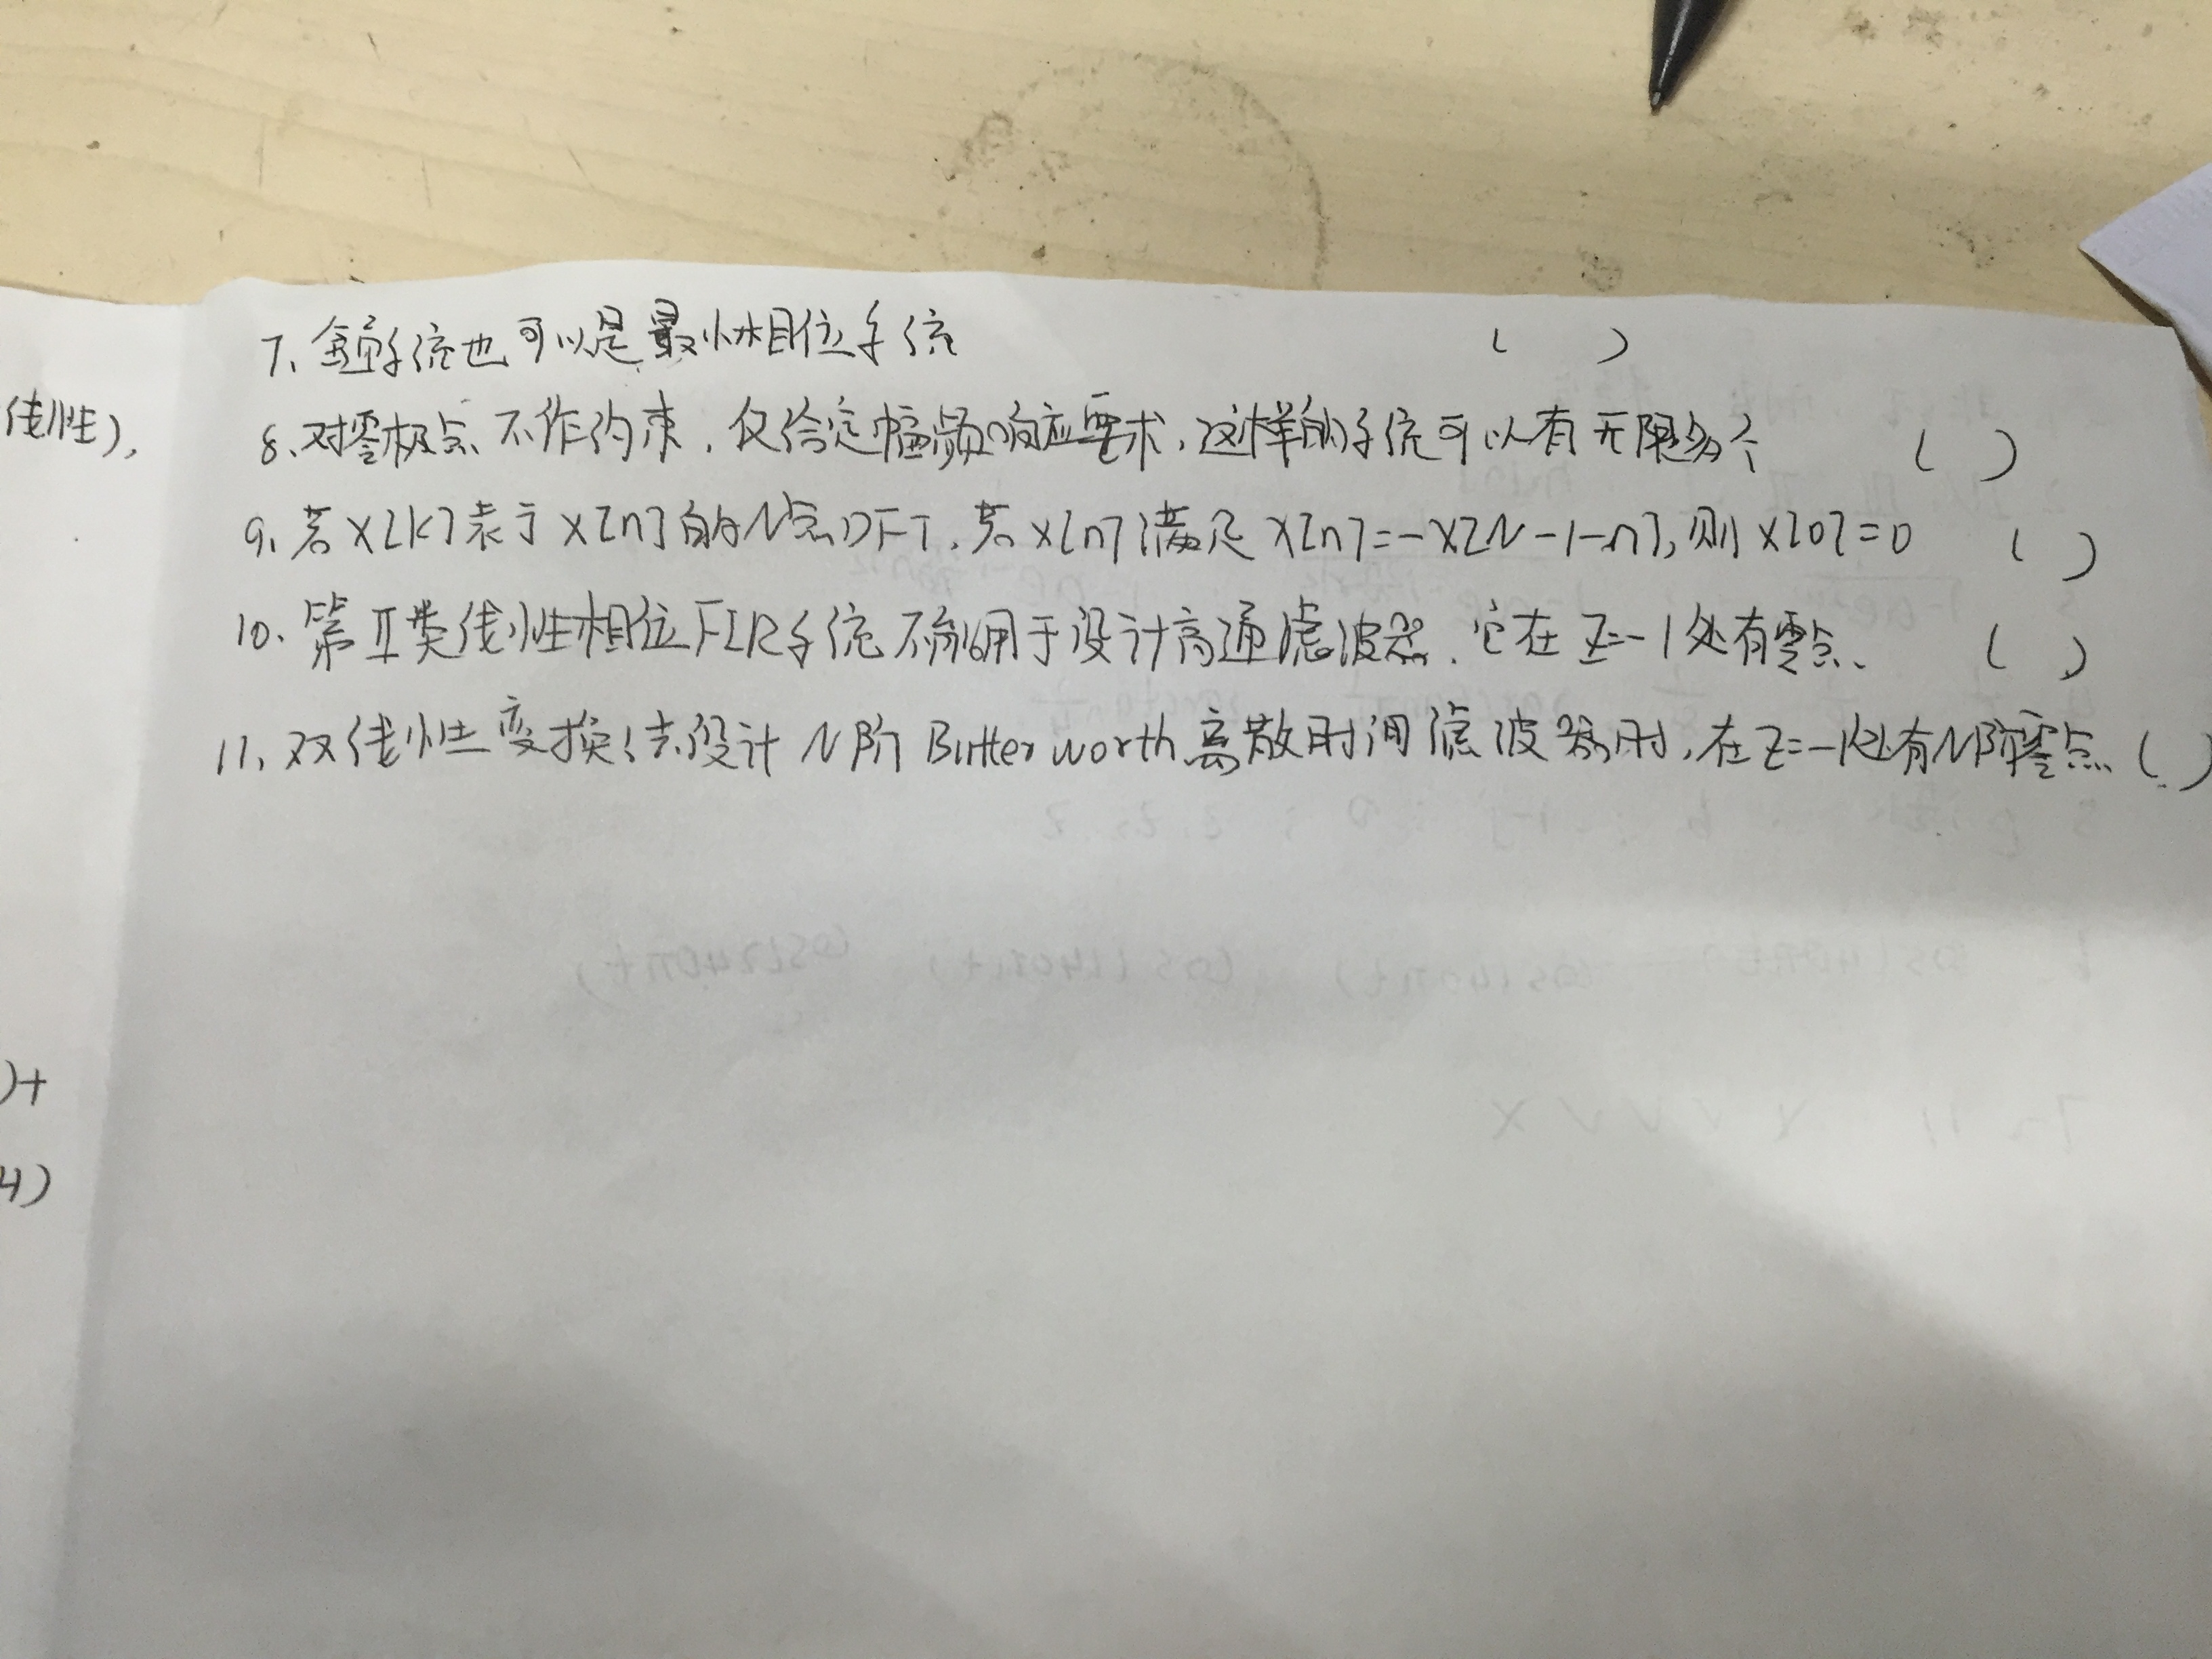 7、全通系统也可以是最小相位系统 ( )
线性),
8、对零极点不作约束，仅给定幅频响应要求，这样的系统可以有无限多个 ( )
9、若X[k]表示x[n]的N点DFT，若x[n]满足x[n]=-x[N-1-n],则X[0]=0 ( )
10、第Ⅱ类线性相位FIR系统不能用于设计高通滤波器、它在Z=-1处有零点、 ( )
11、双线性变换法设计N阶Butterworth离散时间滤波器时，在Z=-1处有N阶零点 ( )
)+
4)